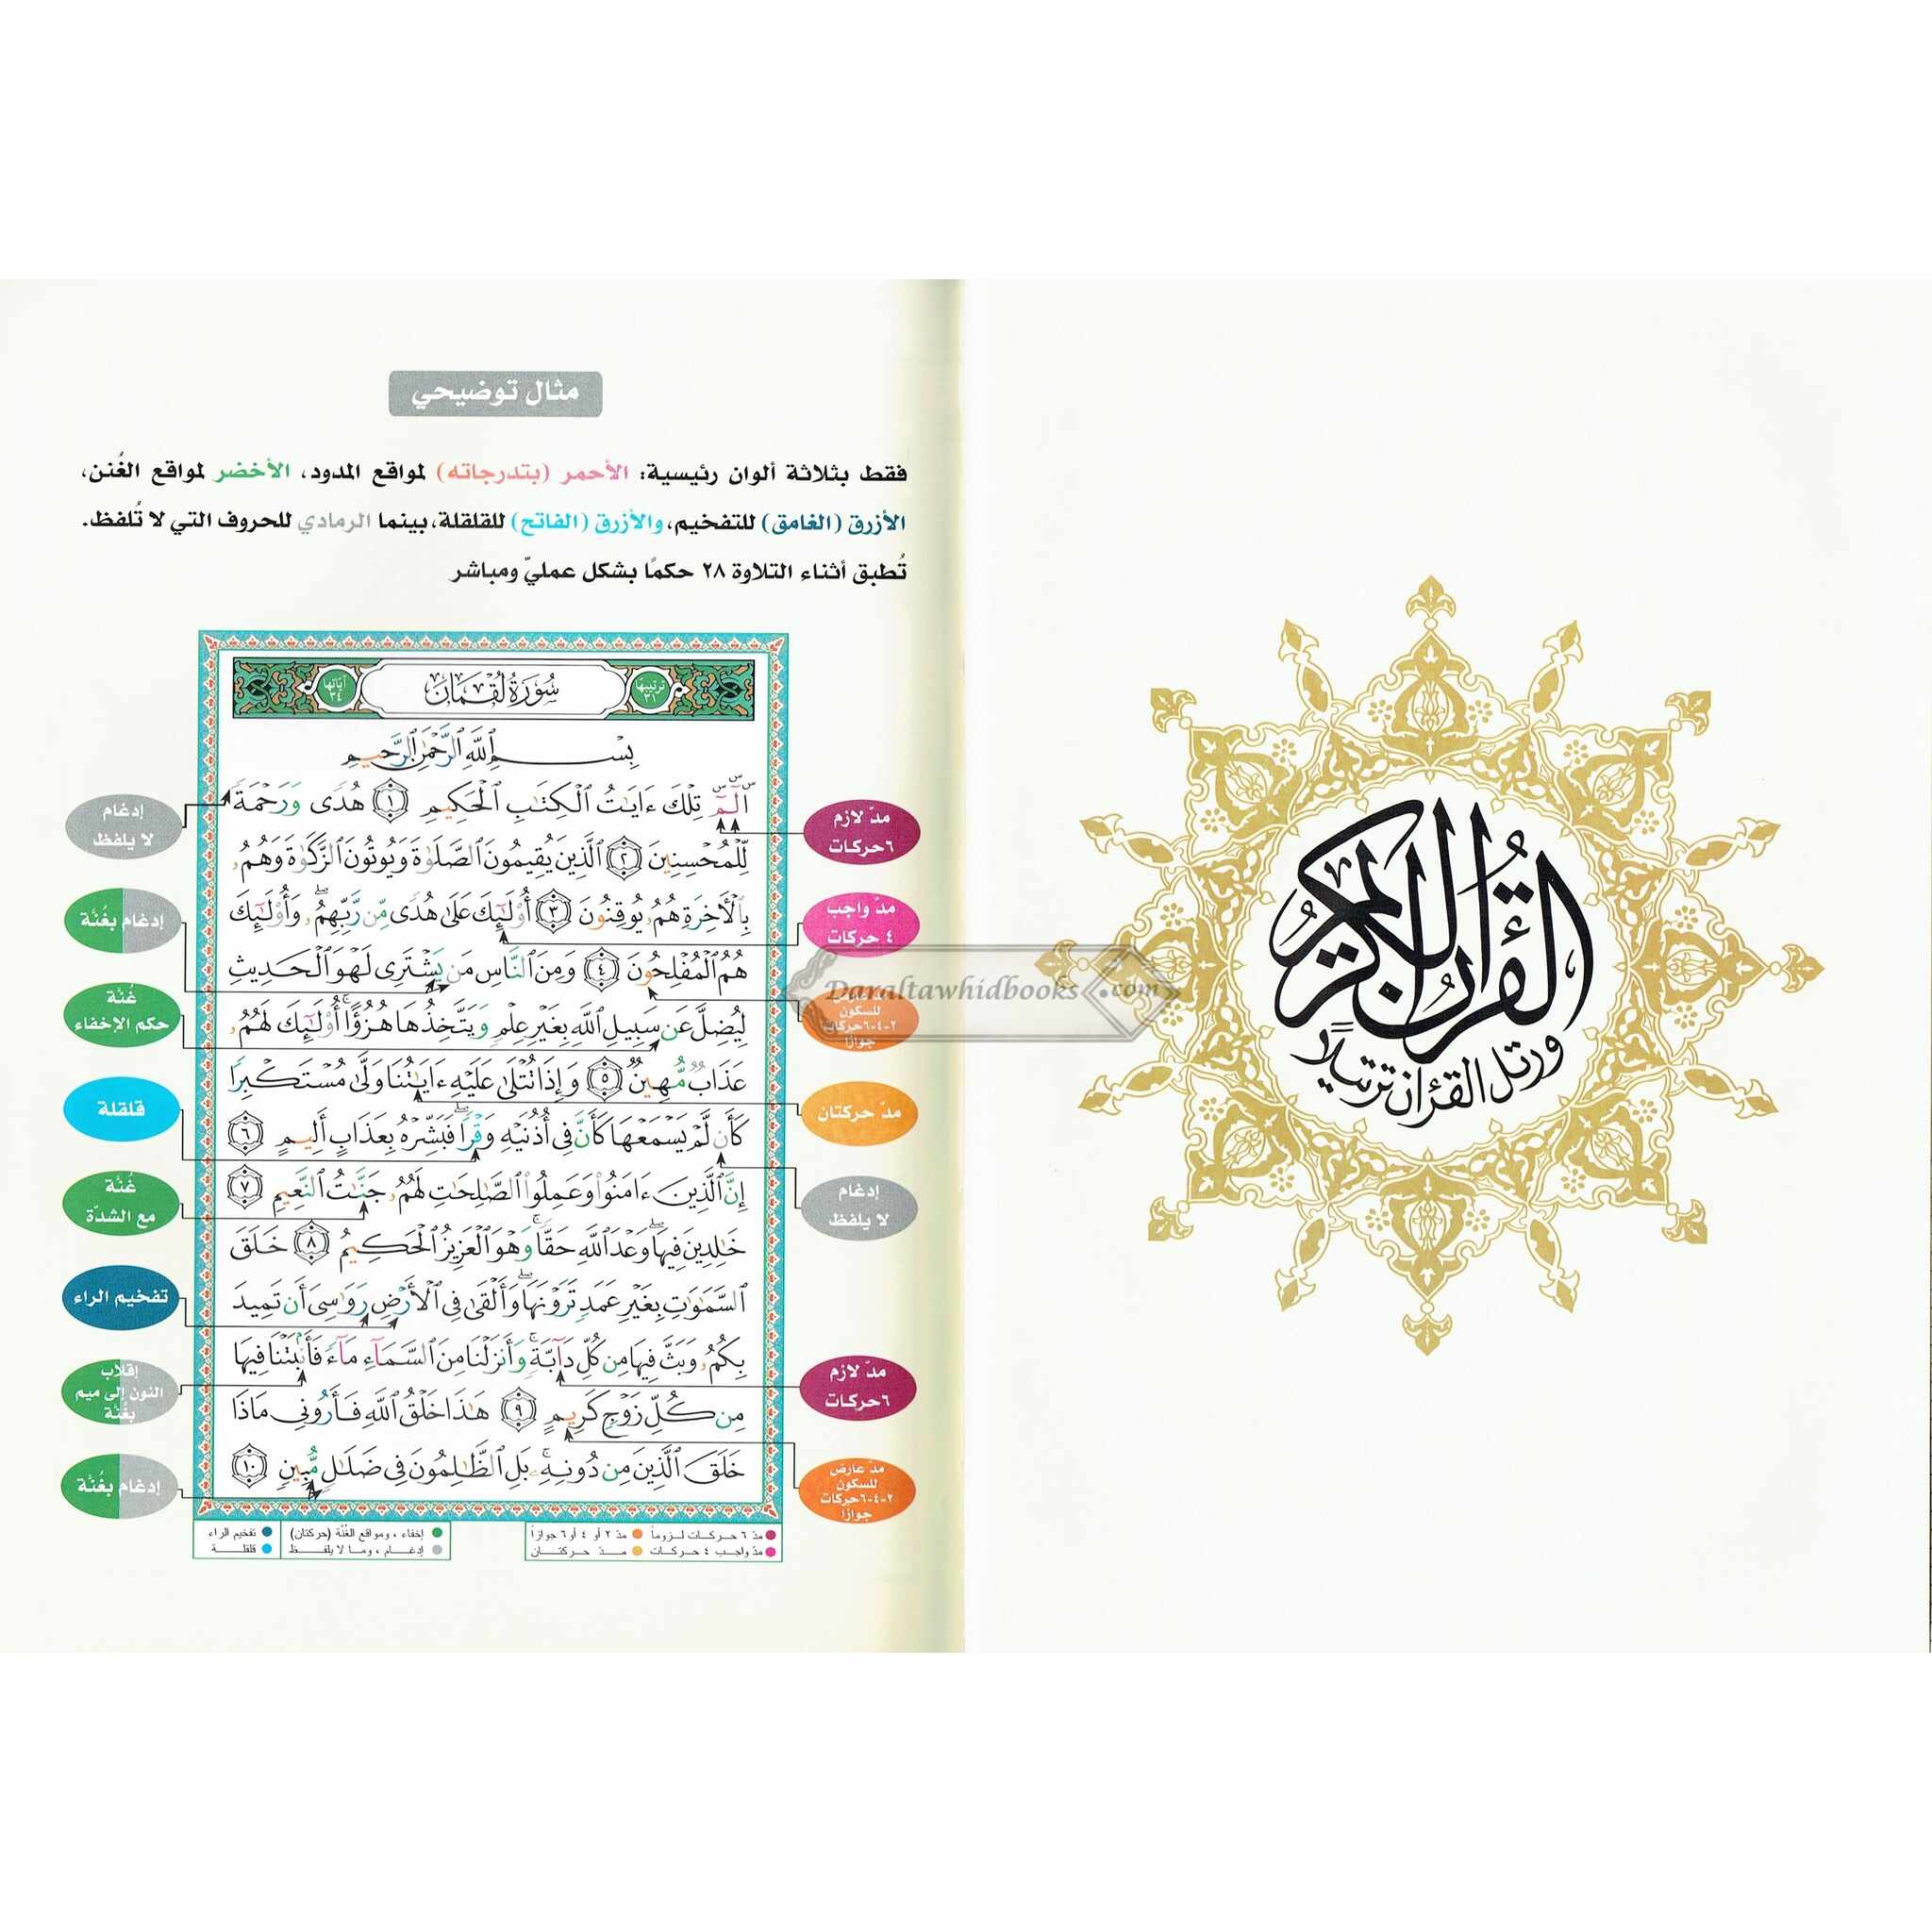 القرآن الكريم
ورتل القرءان ترتيلا
مثال توضيحي
فقط بثلاثة ألوان رئيسية: الأحمر (بتدرجاته) لمواقع المدود، الأخضر لمواقع الغُنن،
الأزرق (الغامق) للتفخيم، والأزرق (الفاتح) للقلقلة، بينما الرمادي للحروف التي لا تُلفظ.
تُطبق أثناء التلاوة ٢٨ حكمًا بشكل عمليّ ومباشر
ترتيبها ٣١
سُورَةُ لُقۡمَان
آياتها ٣٤
بِسۡمِ ٱللَّهِ ٱلرَّحۡمَٰنِ ٱلرَّحِيمِ
الٓمٓ تِلۡكَ ءَايَٰتُ ٱلۡكِتَٰبِ ٱلۡحَكِيمِ ١ هُدٗى وَرَحۡمَةٗ
لِّلۡمُحۡسِنِينَ ٢ ٱلَّذِينَ يُقِيمُونَ ٱلصَّلَوٰةَ وَيُؤۡتُونَ ٱلزَّكَوٰةَ وَهُمُۥ
بِٱلۡأٓخِرَةِ هُمُۥ يُوقِنُونَ ٣ أُوْلَٰٓئِكَ عَلَىٰ هُدٗى مِّن رَّبِّهِمُۥۖ وَأُوْلَٰٓئِكَ
هُمُ ٱلۡمُفۡلِحُونَ ٤ وَمِنَ ٱلنَّاسِ مَن يَشۡتَرِي لَهۡوَ ٱلۡحَدِيثِ
لِيُضِلَّ عَن سَبِيلِ ٱللَّهِ بِغَيۡرِ عِلۡمٖ وَيَتَّخِذُهَا هُزُؤًاۚ أُوْلَٰٓئِكَ لَهُمُۥ
عَذَابٞ مُّهِينٞ ٥ وَإِذَا تُتۡلَىٰ عَلَيۡهِ ءَايَٰتُنَا وَلَّىٰ مُسۡتَكۡبِرٗا
كَأَن لَّمۡ يَسۡمَعۡهَا كَأَنَّ فِيٓ أُذُنَيۡهِ وَقۡرٗاۖ فَبَشِّرۡهُ بِعَذَابٍ أَلِيمٍ ٦
إِنَّ ٱلَّذِينَ ءَامَنُواْ وَعَمِلُواْ ٱلصَّٰلِحَٰتِ لَهُمُۥ جَنَّٰتُ ٱلنَّعِيمِ ٧
خَٰلِدِينَ فِيهَاۖ وَعۡدَ ٱللَّهِ حَقّٗاۚ وَهۡوَ ٱلۡعَزِيزُ ٱلۡحَكِيمُ ٨ خَلَقَ
ٱلسَّمَٰوَٰتِ بِغَيۡرِ عَمَدٖ تَرَوۡنَهَاۖ وَأَلۡقَىٰ فِي ٱلۡأَرۡضِ رَوَٰسِيَ أَن تَمِيدَ
بِكُمُۥ وَبَثَّ فِيهَا مِن كُلِّ دَآبَّةٖۚ وَأَنزَلۡنَا مِنَ ٱلسَّمَآءِ مَآءٗ فَأَنۢبَتۡنَا فِيهَا
مِن كُلِّ زَوۡجٖ كَرِيمٍ ٩ هَٰذَا خَلۡقُ ٱللَّهِ فَأَرُونِي مَاذَا
خَلَقَ ٱلَّذِينَ مِن دُونِهِۦۚ بَلِ ٱلظَّٰلِمُونَ فِي ضَلَٰلٖ مُّبِينٖ ١٠
مدّ لازم
٦ حركات
مدّ واجب
٤ حركات
للسكون
٢-٤-٦ حركات
جوازًا
مدّ حركتان
إدغام
لا يلفظ
مدّ لازم
٦ حركات
مدّ عارض
للسكون
٢-٤-٦ حركات
جوازًا
إدغام
لا يلفظ
إدغام بغُنَّة
غُنَّة
حكم الإخفاء
قلقلة
غُنَّة
مع الشدّة
تفخيم الراء
إقلاب
النون إلى ميم
بغُنَّة
إدغام بغُنَّة
مدّ ٦ حركات لزوماً مدّ ٢ أو ٤ أو ٦ جوازاً
مدّ واجب ٤ حركات مدّ حركتان
إخفاء، ومواقع الغُنَّة (حركتان) تفخيم الراء
إدغام، وما لا يلفظ قلقلة
Daraltawhidbooks.com